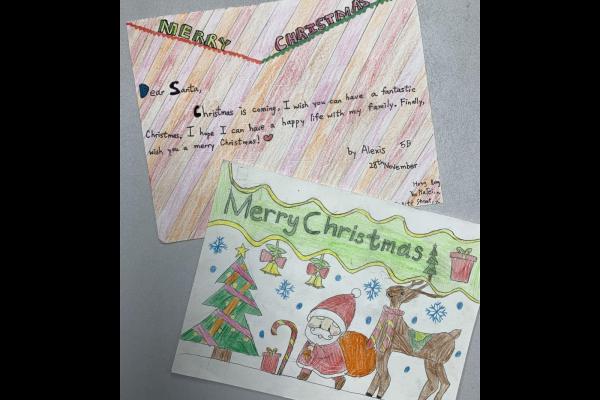 MERRY CHRISTMAS
Dear Santa,
Christmas is coming, I wish you can have a fantastic
Christmas, I hope I can have a happy life with my family. Finally,
wish you a merry Christmas!
by Alexis 5B
28th November
Hong Kong
Street
Merry Christmas